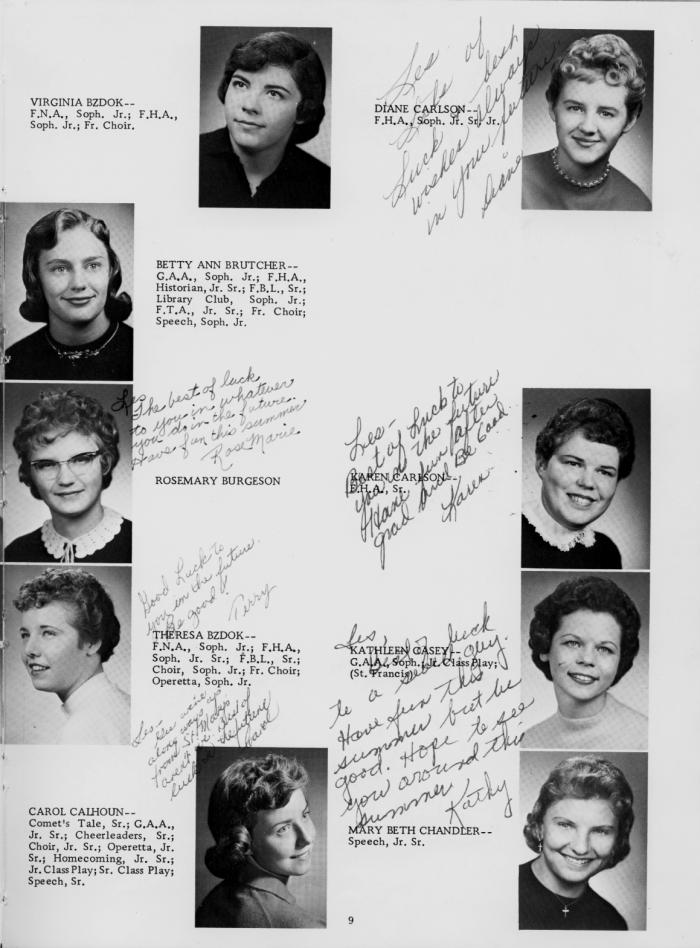 VIRGINIA BZDOK--
F.N.A., Soph. Jr.; F.H.A.,
Soph. Jr.; Fr. Choir.
BETTY ANN BRUTCHER--
G.A.A., Soph. Jr.; F.H.A.,
Historian, Jr. Sr.; F.B.L., Sr.;
Library Club, Soph. Jr.;
F.T.A., Jr. Sr.; Fr. Choir;
Speech, Soph. Jr.
Les
The best of luck
to you in whatever
you do in the future.
Have fun this summer
Rose Marie
ROSEMARY BURGESON
Good Luck to
you in the future.
Be good!
Terry
THERESA BZDOK--
F.N.A., Soph. Jr.; F.H.A.,
Soph. Jr. Sr.; F.B.L., Sr.;
Choir, Soph. Jr.; Fr. Choir;
Operetta, Soph. Jr.
Les-
along ways up
from St. Marys
of
luck in the future
Carol
CAROL CALHOUN--
Comet's Tale, Sr.; G.A.A.,
Jr. Sr.; Cheerleaders, Sr.;
Choir, Jr. Sr.; Operetta, Jr.
Sr.; Homecoming, Jr. Sr.;
Jr. Class Play; Sr. Class Play;
Speech, Sr.
DIANE CARLSON--
F.H.A., Soph. Jr. Sr. Jr.
Les
of
best
Luck
wishes
in your future
Diane
Les-
Best of Luck to
you in the future
Have fun after
grad and Be Good
Karen
KAREN CARLSON--
F.H.A., Sr.
KATHLEEN CASEY--
G.A.A., Soph.; Jr. Class Play;
(St. Francis)
Les,
luck
to a guy.
Have fun this
summer but be
good. Hope to see
you around this
summer
Kathy
MARY BETH CHANDLER--
Speech, Jr. Sr.
9